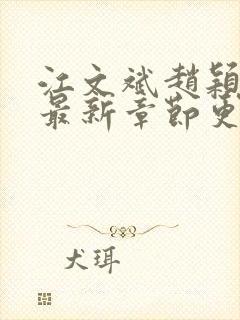 江文斌赵颖
最新章节更
犬珥